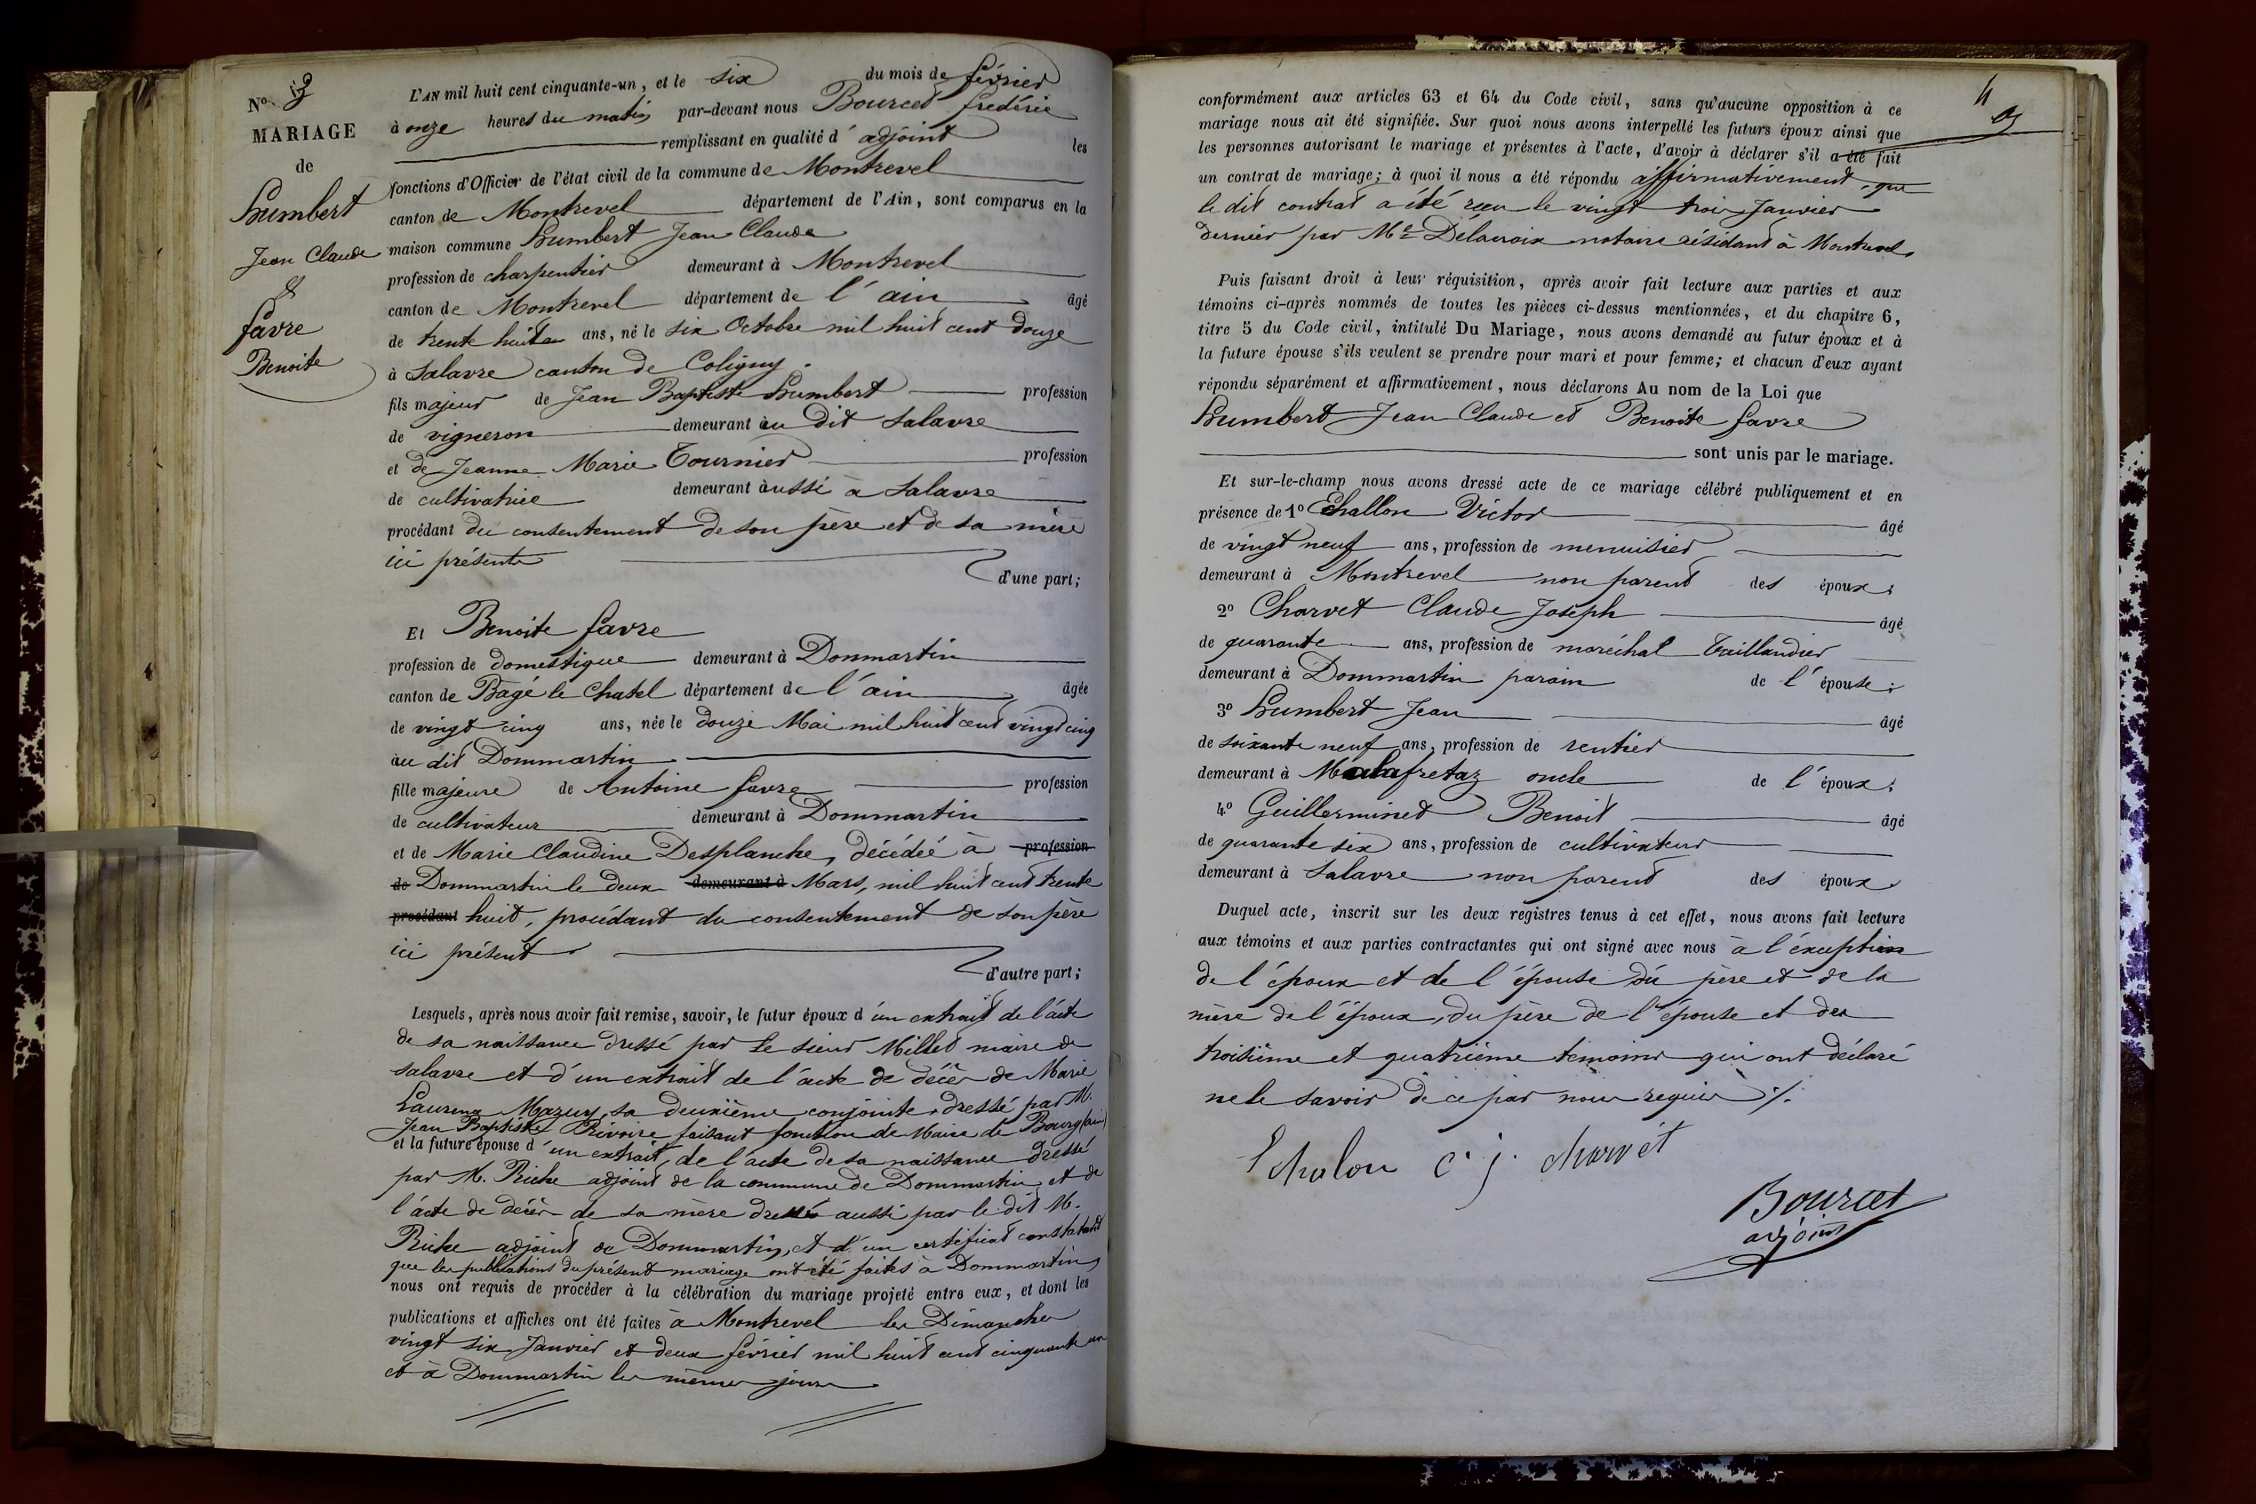 No. 3
MARIAGE
de
Humbert
Jean Claude
&
favre
Benoite
L'AN mil huit cent cinquante-un, et le six du mois de février
à onze heures du matin par-devant nous Bourcet frédéric
remplissant en qualité d'adjoint les
fonctions d'Officier de l'état civil de la commune de Montrevel
canton de Montrevel département de l'Ain, sont comparus en la
maison commune Humbert Jean Claude
profession de charpentier demeurant à Montrevel
canton de Montrevel département de l'ain âgé
de trente huit ans, né le six Octobre mil huit cent douze
à Salavre canton de Coligny.
fils majeur de Jean Baptiste Humbert profession
de vigneron demeurant au dit Salavre
et de Jeanne Marie Tournier profession
de cultivatrice demeurant aussi à Salavre
procédant du consentement de son père et de sa mère
ici présents
d'une part;
Et Benoite favre
profession de domestique demeurant à Dommartin
canton de Bagé le Chatel département de l'ain âgée
de vingt cinq ans, née le douze Mai mil huit cent vingt cinq
au dit Dommartin
fille majeure de Antoine favre profession
de cultivateur demeurant à Dommartin
et de Marie Claudine Desplanche, décédée à profession
de Dommartin le deux demeurant à Mars, mil huit cent trente
procédant huit, procédant du consentement de son père
ici présent
d'autre part;
Lesquels, après nous avoir fait remise, savoir, le futur époux d'un extrait de l'acte
de sa naissance dressé par le sieur Millet maire de
Salavre et d'un extrait de l'acte de décès de Marie
Laurence Mazuy, sa deuxième conjointe, dressé par M.
Jean Baptiste Rivoire faisant fonction de Maire de Bourg (ain)
et la future épouse d'un extrait, de l'acte de sa naissance dressé
par M. Riche adjoint de la commune de Dommartin et de
l'acte de décès de sa mère dressé aussi par le dit M.
Riche adjoint de Dommartin, et d'un certificat constatant
que les publications du présent mariage ont été faites à Dommartin,
nous ont requis de procéder à la célébration du mariage projeté entre eux, et dont les
publications et affiches ont été faites à Montrevel les Dimanches
vingt six Janvier et deux février mil huit cent cinquante un
et à Dommartin les mêmes jours
4
conformément aux articles 63 et 64 du Code civil, sans qu'aucune opposition à ce
mariage nous ait été signifiée. Sur quoi nous avons interpellé les futurs époux ainsi que
les personnes autorisant le mariage et présentes à l'acte, d'avoir à déclarer s'il a été fait
un contrat de mariage; à quoi il nous a été répondu affirmativement, que
le dit contrat a été reçu le vingt trois Janvier
dernier par Me Délacroix notaire résidant à Montrevel,
Puis faisant droit à leur réquisition, après avoir fait lecture aux parties et aux
témoins ci-après nommés de toutes les pièces ci-dessus mentionnées, et du chapitre 6,
titre 5 du Code civil, intitulé Du Mariage, nous avons demandé au futur époux et à
la future épouse s'ils veulent se prendre pour mari et pour femme; et chacun d'eux ayant
répondu séparément et affirmativement, nous déclarons Au nom de la Loi que
Humbert Jean Claude et Benoite favre
sont unis par le mariage.
Et sur-le-champ nous avons dressé acte de ce mariage célébré publiquement et en
présence de 1º Echallon Victor âgé
de vingt neuf ans, profession de menuisier
demeurant à Montrevel non parent des époux;
2º Charvet Claude Joseph âgé
de quarante ans, profession de maréchal taillandier
demeurant à Dommartin parain de l'épouse;
3º Humbert Jean âgé
de soixante neuf ans, profession de rentier
demeurant à Malafretaz oncle de l'époux;
4º Guillerminet Benoit âgé
de quarante six ans, profession de cultivateur
demeurant à Salavre non parent des époux
Duquel acte, inscrit sur les deux registres tenus à cet effet, nous avons fait lecture
aux témoins et aux parties contractantes qui ont signé avec nous à l'éxception
de l'époux et de l'épouse du père et de la
mère de l'époux, du père de l'épouse et des
troisième et quatrième témoins qui ont déclaré
ne le savoir de ce par nous requis ./.
Echalon C. j. charvét
Bourcet
adjoint